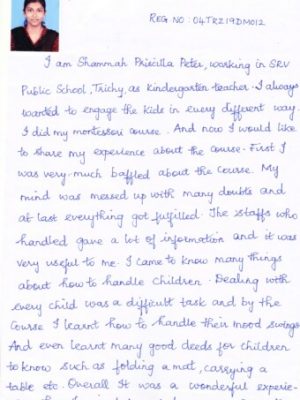 REG NO : 04TRZ19DM012
I am Shammah Priscilla Peter, working in SRV
Public School, Trichy, as kindergarten teacher. I always
wanted to engage the kids in every different way.
I did my montessori course. And now I would like
to share my experience about the course. First I
was very much baffled about the course. My
mind was messed up with many doubts and
at last everything got fulfilled. The staffs who
handled gave a lot of information and it was
very useful to me. I came to know many things
about how to handle children. Dealing with
every child was a difficult task and by the
Course I learnt how to handle their mood swings
And even learnt many good deeds for children
to know such as folding a mat, carrying a
table etc. Overall It was a wonderful experie-